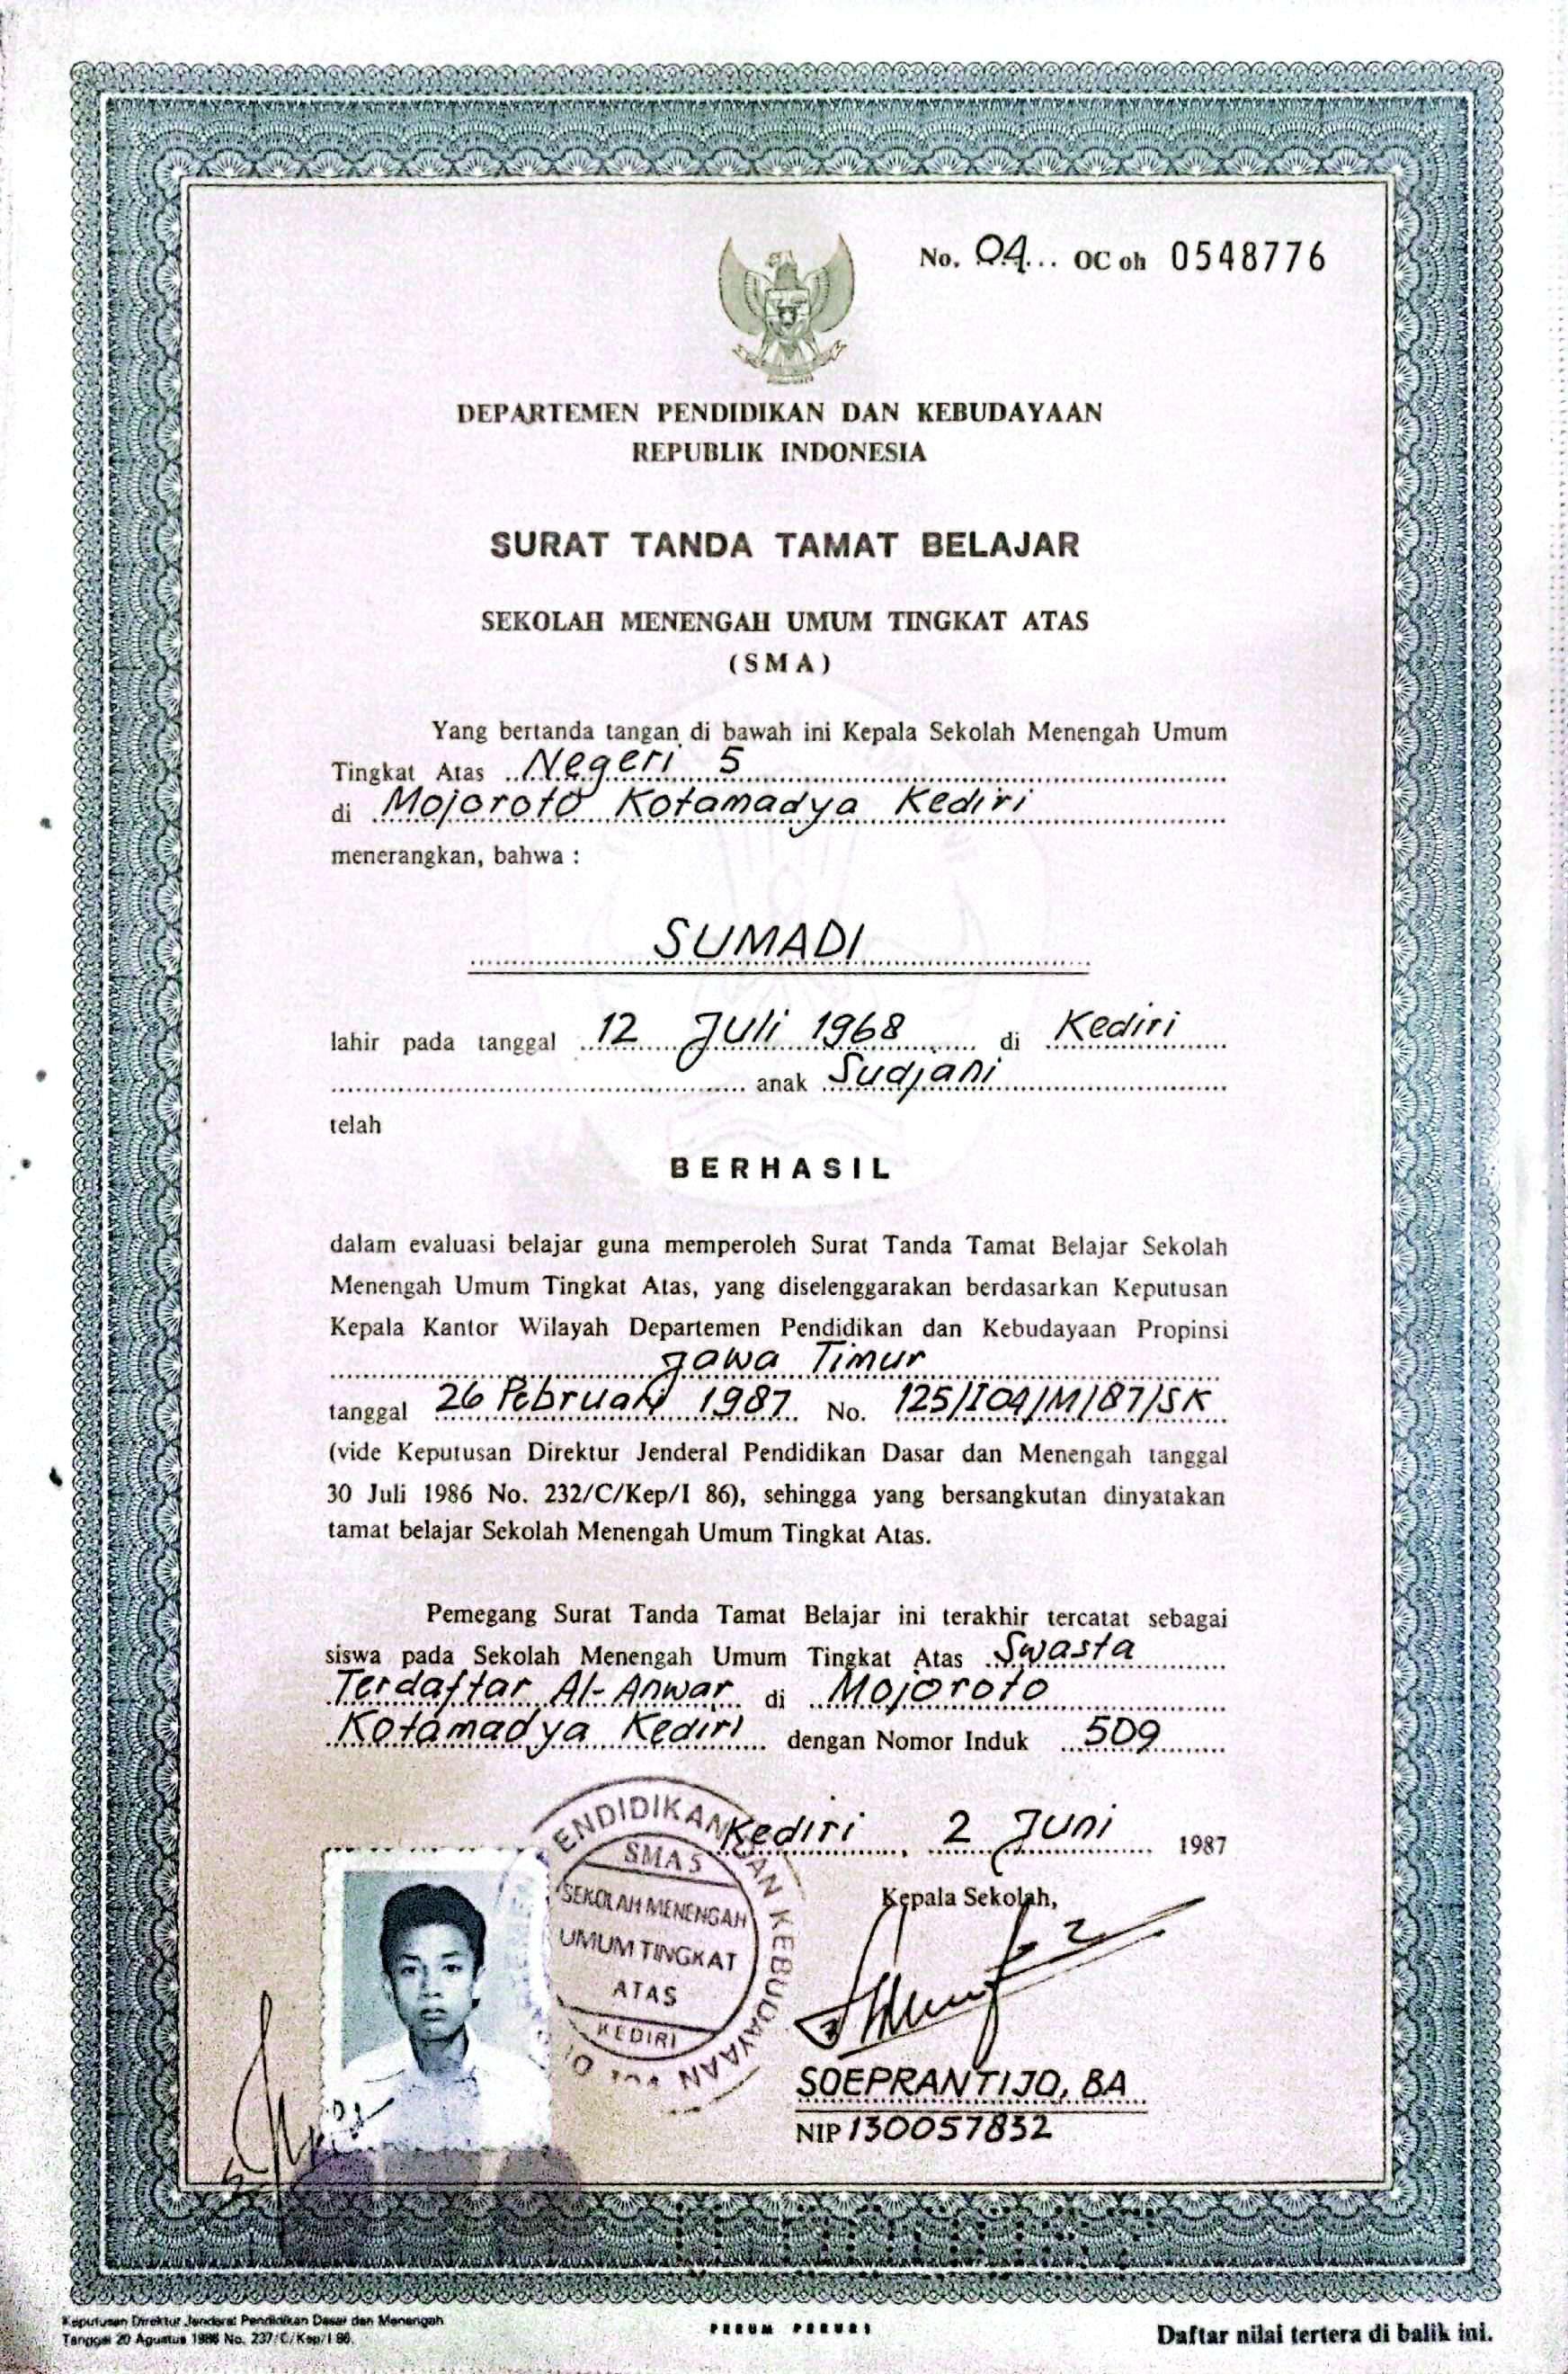 No. 04... OC oh 0548776
DEPARTEMEN PENDIDIKAN DAN KEBUDAYAAN
REPUBLIK INDONESIA
SURAT TANDA TAMAT BELAJAR
SEKOLAH MENENGAH UMUM TINGKAT ATAS
(SMA)
Yang bertanda tangan di bawah ini Kepala Sekolah Menengah Umum
Tingkat Atas Negeri 5
di Mojoroto Kotamadya Kediri
menerangkan, bahwa :
SUMADI
lahir pada tanggal 12 Juli 1968 di Kediri
anak Sudjani
telah
BERHASIL
dalam evaluasi belajar guna memperoleh Surat Tanda Tamat Belajar Sekolah
Menengah Umum Tingkat Atas, yang diselenggarakan berdasarkan Keputusan
Kepala Kantor Wilayah Departemen Pendidikan dan Kebudayaan Propinsi
Jawa Timur
tanggal 26 Pebruari 1987 No. 125/I04/M/87/SK
(vide Keputusan Direktur Jenderal Pendidikan Dasar dan Menengah tanggal
30 Juli 1986 No. 232/C/Kep/I 86), sehingga yang bersangkutan dinyatakan
tamat belajar Sekolah Menengah Umum Tingkat Atas.
Pemegang Surat Tanda Tamat Belajar ini terakhir tercatat sebagai
siswa pada Sekolah Menengah Umum Tingkat Atas Swasta
Terdaftar Al-Anwar di Mojoroto
Kotamadya Kediri dengan Nomor Induk 509
Kediri, 2 Juni 1987
ENDIDIKAN DAN KEBUDAYAAN
SMA 5
SEKOLAH MENENGAH
UMUM TINGKAT
ATAS
KEDIRI
Kepala Sekolah,
SOEPRANTIJO, BA
NIP 130057832
Keputusan Direktur Jenderal Pendidikan Dasar dan Menengah
Tanggal 20 Agustus 1986 No. 237/C/Kep/I 86.
PERUM PERURI
Daftar nilai tertera di balik ini.